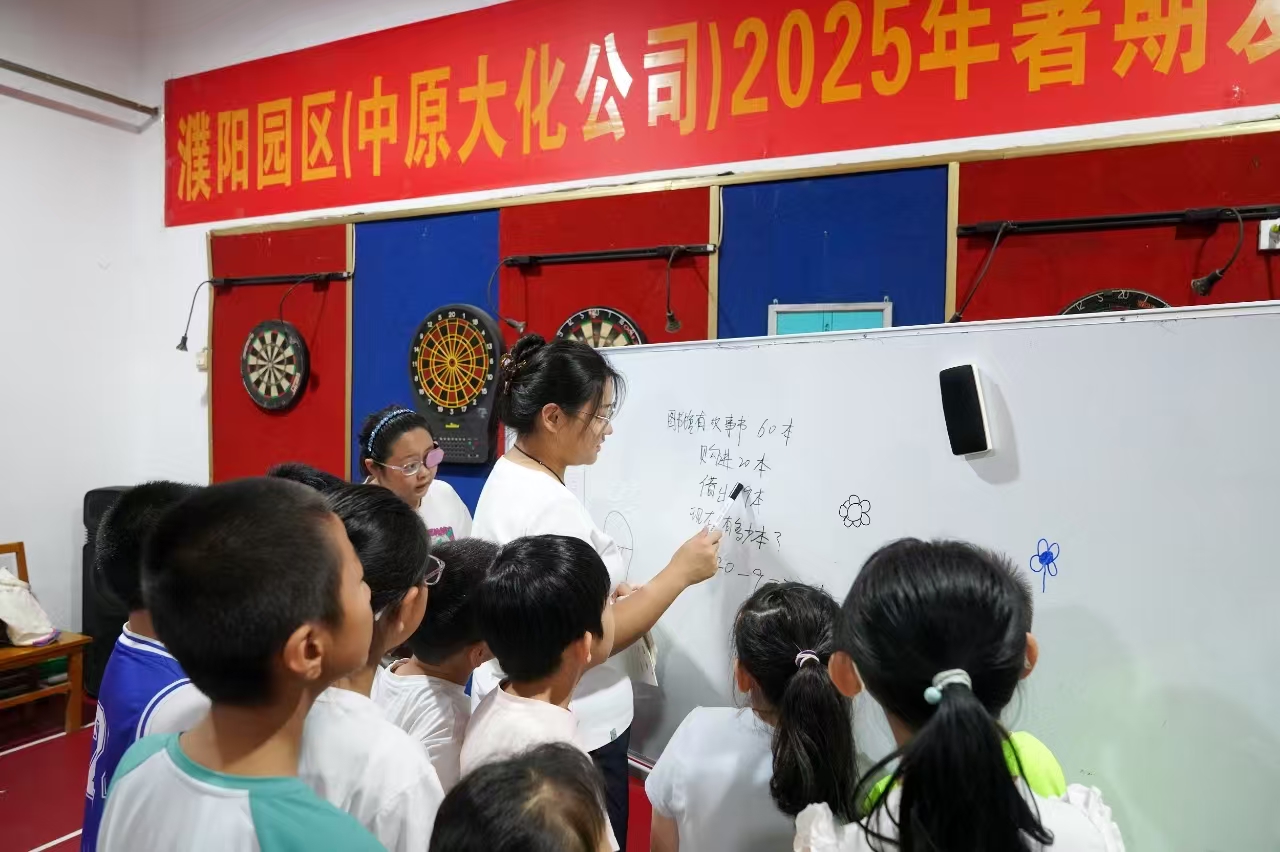 濮阳园区(中原大化公司)2025年暑期
图书馆有故事书 60本
购进20本
借出 9本
现在有多少本?
20-9=